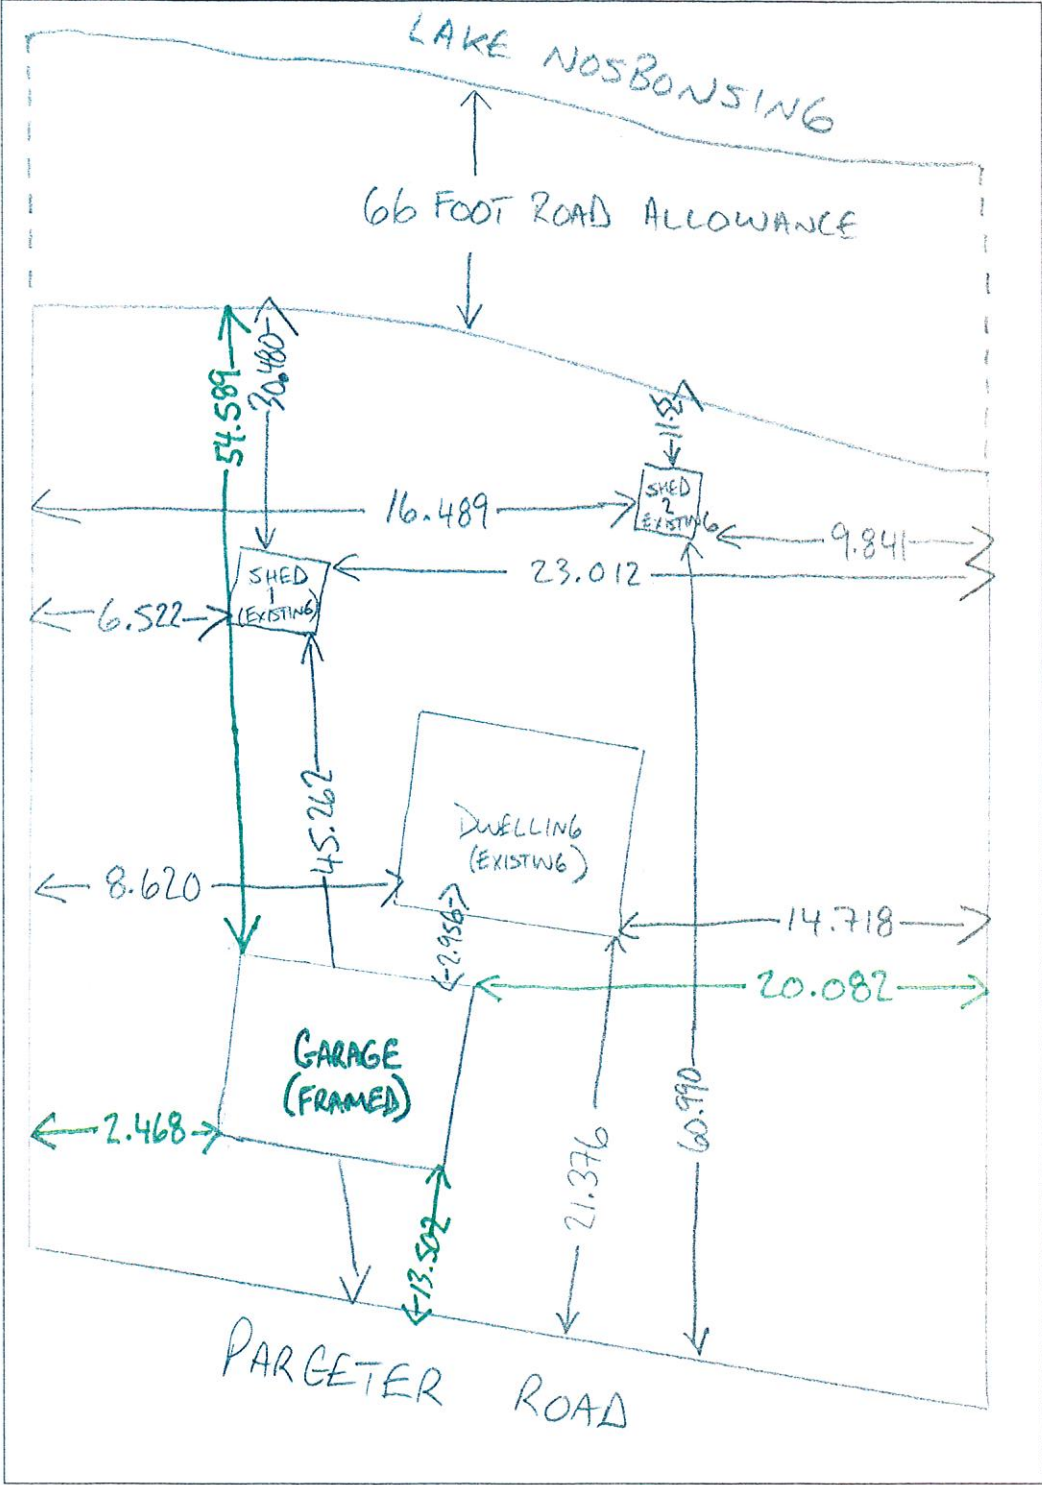 LAKE NOSBONSING
66 FOOT ROAD ALLOWANCE
54.589
30.480
16.489
SHED
2
EXISTING
9.841
23.012
SHED
1
(EXISTING)
6.522
45.262
DWELLING
(EXISTING)
8.620
2.956
14.718
20.082
GARAGE
(FRAMED)
2.468
21.376
60.990
13.502
PARGETER ROAD